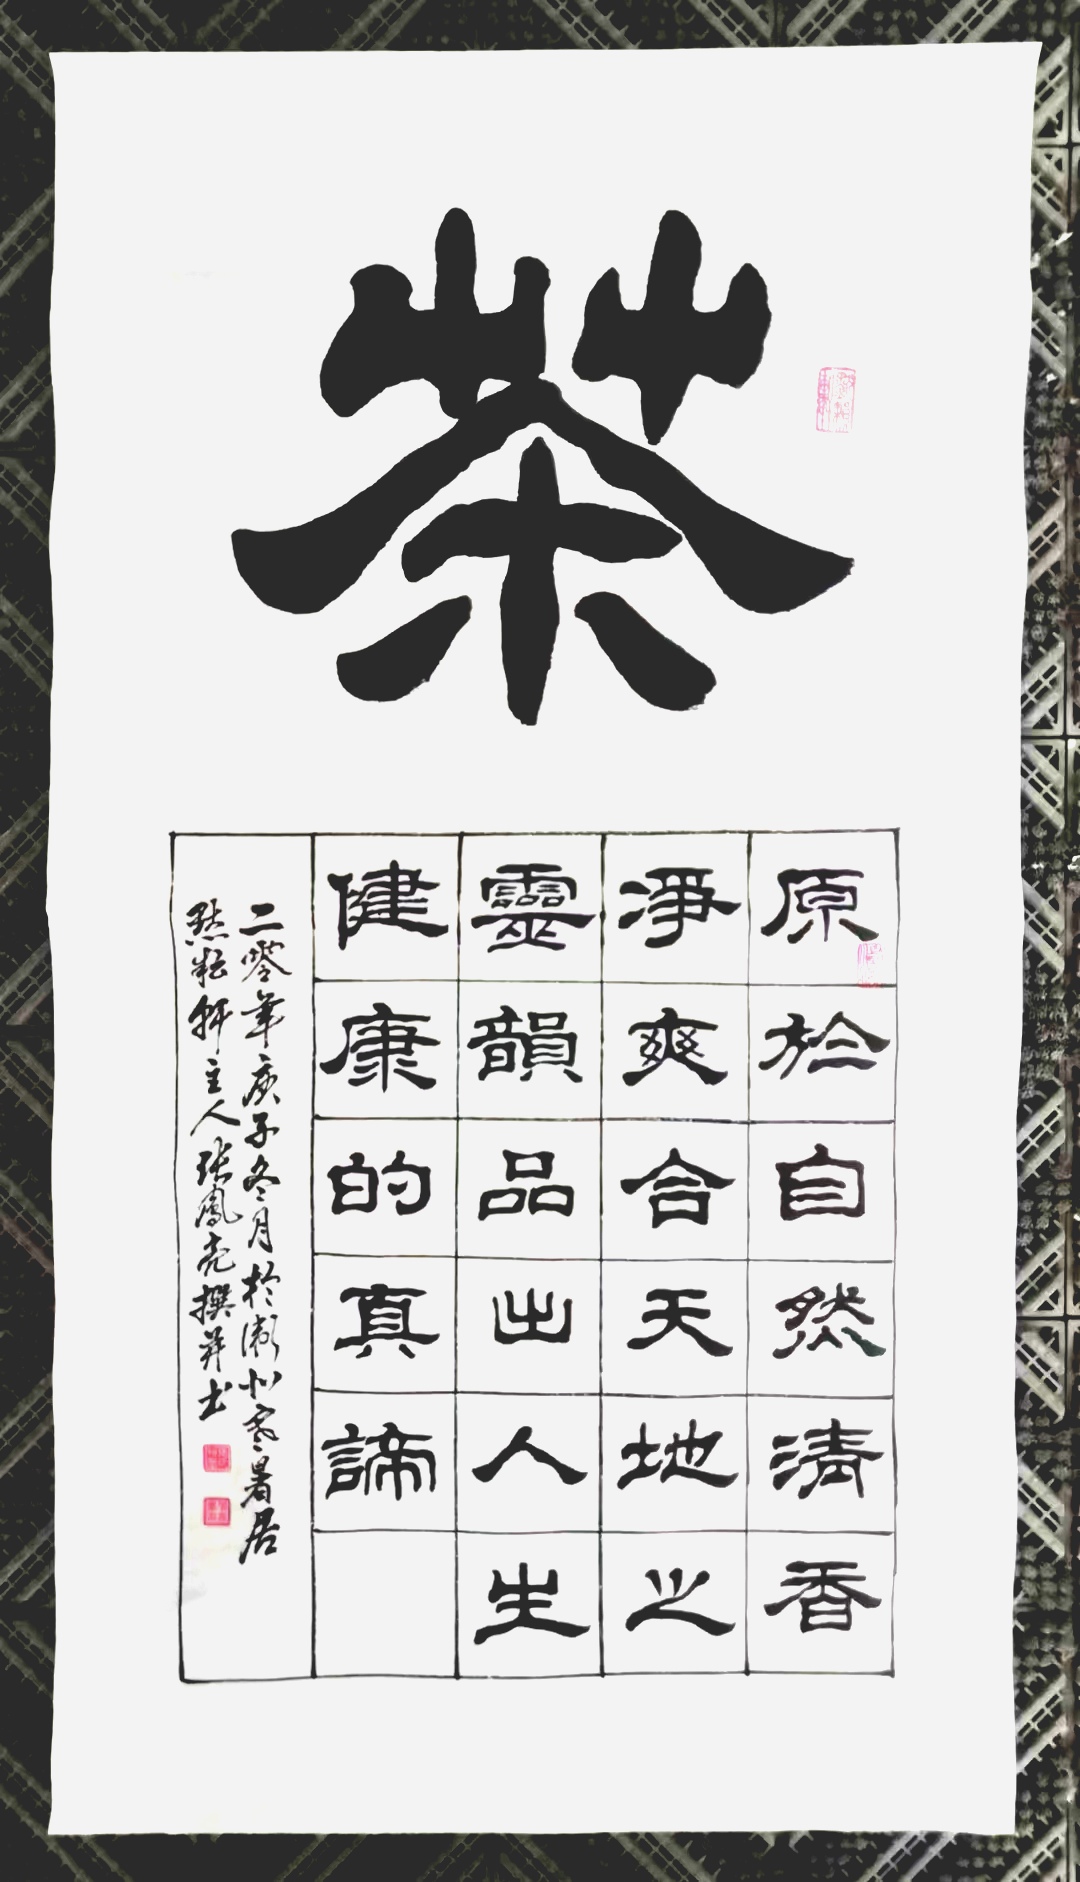 茶
原於自然清香
淨爽合天地之
靈韻品出人生
健康的真諦
二零年庚子冬月於衡水寒暑居
默耘軒主人張鳳亮撰并书